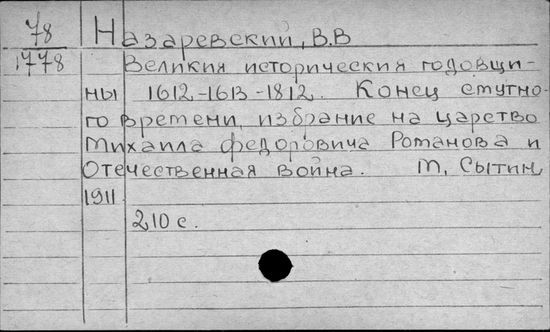 78 Назаревский, В.В
1778 Великия историческия годовщи-
ны 1612-1613-1812. Конец смутно-
го времени, избрание на царство
Михаила Федоровича Романова и
Отечественная война. М, Сытин,
1911
210 с.